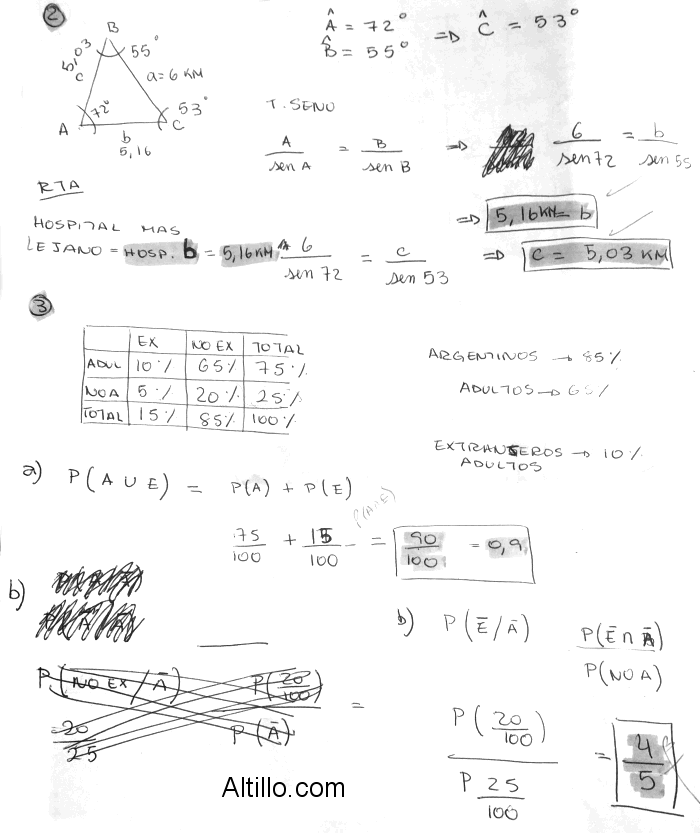 ②
B
5,03
c
55°
a = 6 KM
72°
53°
A
b
C
5,16
Â = 72°
B̂ = 55°
=D Ĉ = 53°
T. SENO
A / sen A = B / sen B =D 6 / sen 72 = b / sen 55
=D 5,16 KM = b
RTA
HOSPITAL MAS
LEJANO = HOSP. b = 5,16 KM
6 / sen 72 = c / sen 53 =D c = 5,03 KM
③
EX NO EX TOTAL
ADUL 10% 65% 75%
NO A 5% 20% 25%
TOTAL 15% 85% 100%
ARGENTINOS → 85%
ADULTOS → 65%
EXTRANJEROS → 10%
ADULTOS
a) P(A ∪ E) = P(A) + P(E)
P(A∩E)
75/100 + 15/100 = 90/100 = 0,9
b)
P(NO EX / Ā) P(20/100)
P(Ā) =
= 20/25
b) P(Ē/Ā) P(Ē ∩ Ā) / P(NO A)
P(20/100) / P 25/100 = 4/5
Altillo.com